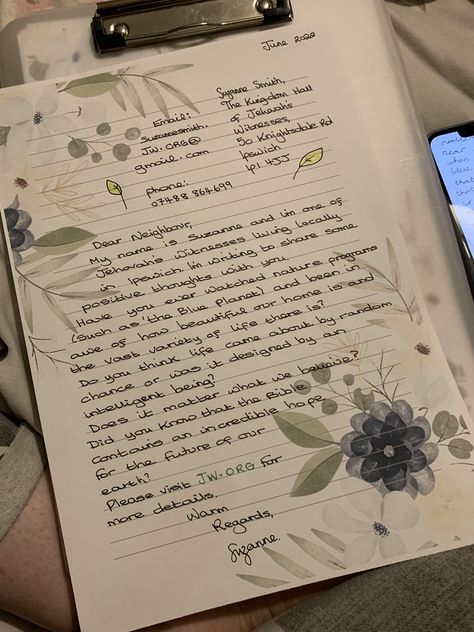 June 2022
Suzanne Smith,
The Kingdom Hall
of Jehovah's
Witnesses,
50 Knightsdale Rd
Ipswich
IP1 4JJ
Email:
suzannesmith.
JW.ORG@
gmail.com
phone:
07488 864699
Dear Neighbour,
My name is suzanne and I'm one of
Jehovah's Witnesses living locally
in Ipswich. I'm writing to share some
positive thoughts with you.
Have you ever watched nature programs
(such as 'the Blue Planet) and been in
awe of how beautiful our home is and
the vast variety of life there is?
Do you think life came about by random
chance or was it designed by an
intelligent being?
Does it matter what we believe?
Did you know that the Bible
contains an incredible hope
for the future of our
earth?
Please visit JW.ORG for
more details.
Warm
Regards,
Suzanne.